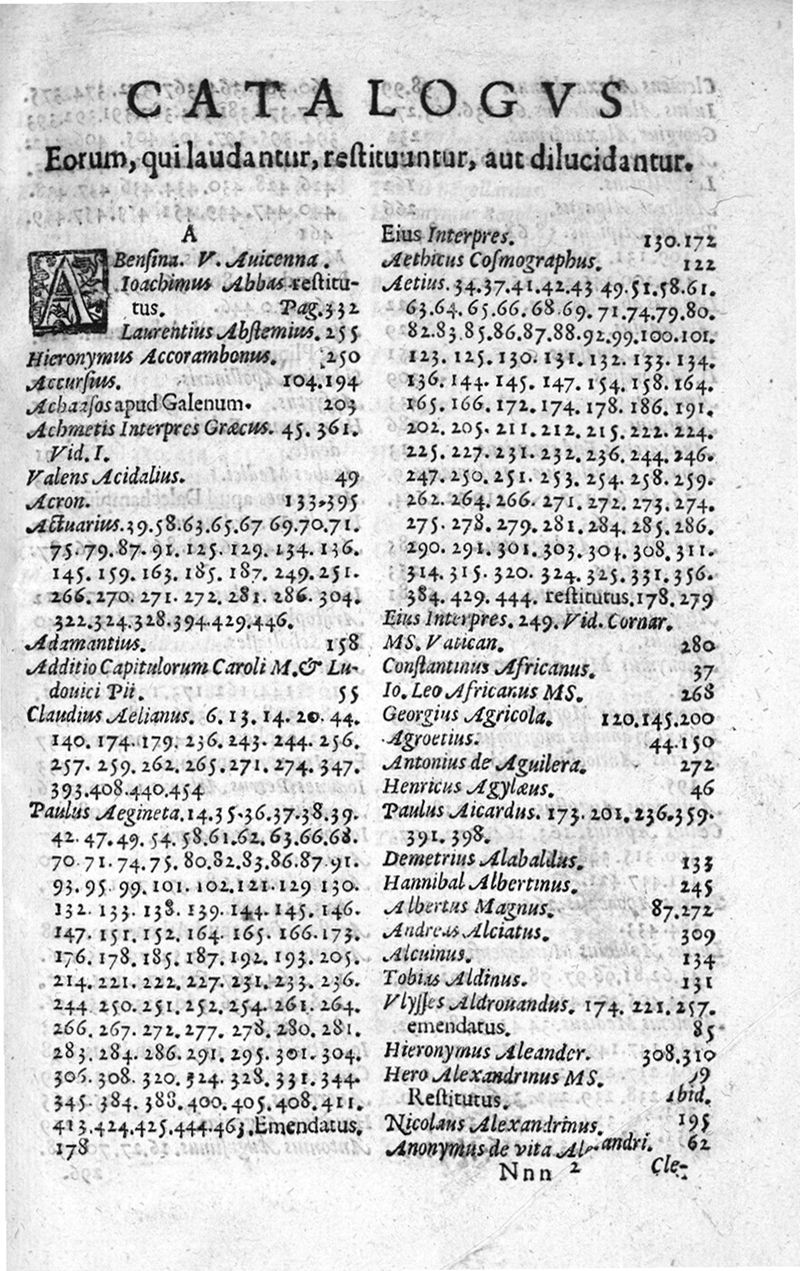 CATALOGVS
Eorum, qui laudantur, restituuntur, aut dilucidantur.
A
ABensina. V. Auicenna.
Ioachimus Abbas restitu-
tus. Pag. 332
Laurentius Abstemius. 255
Hieronymus Accorambonus. 250
Accursius. 104.194
Achaasos apud Galenum. 203
Achmetis Interpres Græcus. 45. 361.
Vid. I.
Valens Acidalius. 49
Acron. 133.395
Actuarius. 39.58.63.65.67 69.70.71.
75.79.87.91.125.129.134.136.
145.159.163.185.187.249.251.
266.270.271.272.281.286.304.
322.324.328.394.429.446.
Adamantius. 158
Additio Capitulorum Caroli M. & Lu-
douici Pii. 55
Claudius Aelianus. 6.13.14.20.44.
140.174.179.236.243.244.256.
257.259.262.265.271.274.347.
393.408.440.454
Paulus Aegineta. 14.35.36.37.38.39.
42.47.49.54.58.61.62.63.66.68.
70.71.74.75.80.82.83.86.87.91.
93.95.99.101.102.121.129 130.
132.133.138.139.144.145.146.
147.151.152.164.165.166.173.
176.178.185.187.192.193.205.
214.221.222.227.231.233.236.
244 250.251.252.254.261.264.
266.267.272.277.278.280.281.
283.284.286.291.295.301.304.
306.308.320.324.328.331.344.
345.384.388.400.405.408.411.
413.424.425.444.463. Emendatus.
178
Eius Interpres. 130.172
Aethicus Cosmographus. 122
Aetius. 34.37.41.42.43 49.51.58.61.
63.64.65.66.68.69.71.74.79.80.
82.83.85.86.87.88.92.99.100.101.
123.125.130.131.132.133.134.
136.144.145.147.154.158.164.
165.166.172.174.178.186.191.
202.205.211.212.215.222.224.
225.227.231.232.236.244.246.
247.250.251.253.254.258.259.
262.264.266.271.272.273.274.
275.278.279.281.284.285.286.
290.291.301.303.304.308.311.
314.315.320.324.325.331.356.
384.429.444. restitutus. 178.279
Eius Interpres. 249. Vid. Cornar.
MS. Vatican. 280
Constantinus Africanus. 37
Io. Leo Africanus MS. 268
Georgius Agricola. 120.145.200
Agroetius. 44.150
Antonius de Aguilera. 272
Henricus Agylæus. 46
Paulus Aicardus. 173.201.236.359.
391.398.
Demetrius Alabaldus. 133
Hannibal Albertinus. 245
Albertus Magnus. 87.272
Andreas Alciatus. 309
Alcuinus. 134
Tobias Aldinus. 131
Vlysses Aldrouandus. 174.221.257.
emendatus. 85
Hieronymus Aleander. 308.310
Hero Alexandrinus MS. 19
Restitutus. ibid.
Nicolaus Alexandrinus. 195
Anonymus de vita Alexandri. 62
Nnn 2 Cle-